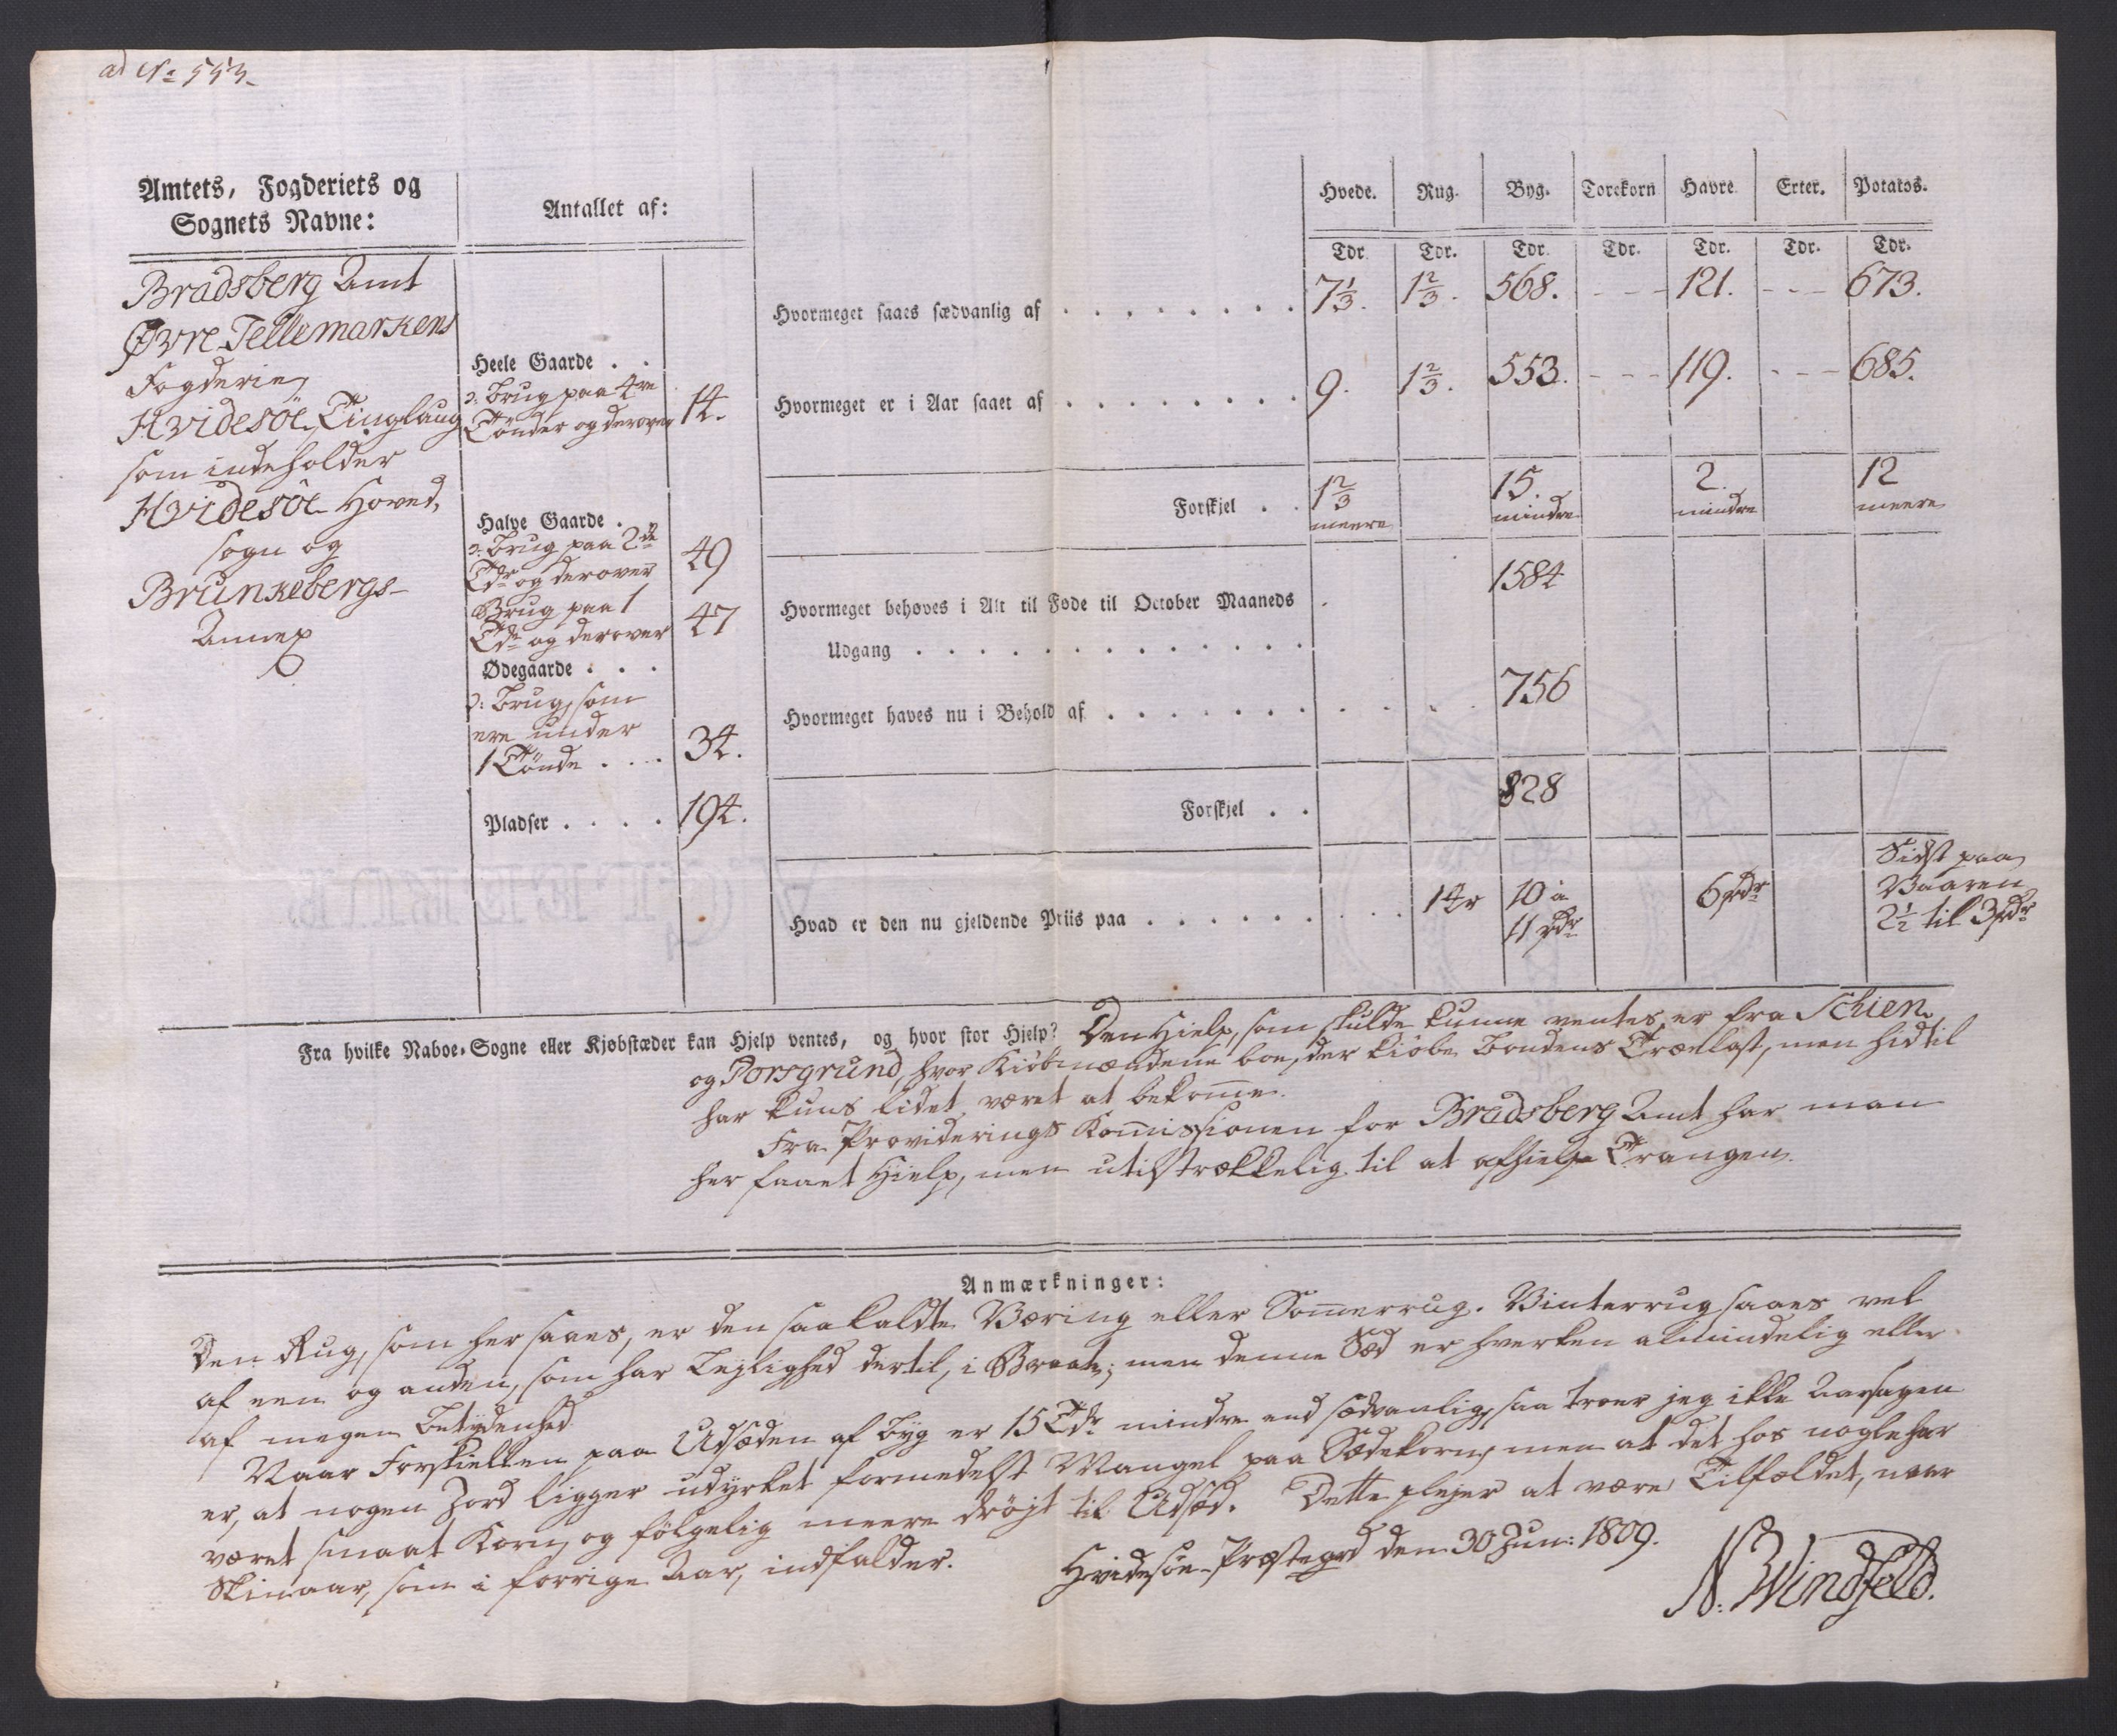 ad No 553.
Amtets, Fogderiets og
Sognets Navne:
Antallet af:
Hvede. Rug. Byg. Torekorn Havre. Erter. Potatos.
Tdr. Tdr. Tdr. Tdr. Tdr. Tdr. Tdr.
Bradsberg Amt
Øvre Tellemarkens
Fogderie
Hvidesöe Tinglaug
som indeholder
Hvidesöe Hoved,
sogn og
Brunkebergs-
Annex
Heele Gaarde . .
ɔ: Brug paa 4re
Tönder og derover 14.
Halve Gaarde .
ɔ: Brug paa 2de
Tdr og derover 49
Brug paa 1
Tdr og derover 47
Ødegaarde . . .
ɔ: Brug, som
ere under
1 Tönde . . . 34.
Pladser . . . . 194.
Hvormeget saaes sædvanlig af . . . . . . . . 7 1/3. 1 2/3. 568. - - - 121. - - - 673.
Hvormeget er i Aar saaet af . . . . . . . . 9. 1 2/3. 553. - - - 119. - - - 685.
Forskjel . . 1 2/3 meere 15. mindre 2. mindre 12 meere
Hvormeget behøves i Alt til Føde til October Maaneds
Udgang . . . . . . . . . . . . . 1584
Hvormeget haves nu i Behold af . . . . . . . . . . . 756
Forskjel . . 828
Hvad er den nu gjeldende Priis paa . . . . . . . . . 14r 10 à 11 rdr 6 rdr Sidst paa Vaaren 2 1/2 til 3 rdr
Fra hvilke Naboe-Sogne eller Kjøbstæder kan Hjelp ventes, og hvor stor Hjelp? Den Hielp, som skulde kunne ventes, er fra Schien
og Porsgrund, hvor Kiöbmændene boe, der kiöbe Bondens Trælast, men hidtil
har kuns lidet været at bekomme.
Fra Providerings Kommissionen for Bradsberg Amt har man
her faaet Hielp, men utilstrækkelig til at afhielpe Trangen.
Anmærkninger:
Den Rug, som her saaes, er den saa kaldte Væring eller Sommerrug. Vinterrug saaes vel
af een og anden, som har Lejlighed dertil, i Braate; men denne Sæd er hverken almindelig eller
af megen Betydenhed.
Naar Forskiellen paa Udsæden af Byg er 15 Tdr mindre end sædvanlig, saa troer jeg ikke Aarsagen
er, at nogen Jord ligger udyrket formedelst Mangel paa Sædekorn, men at det hos nogle har
været smaat Korn, og fölgelig meere dröjt til Udsæd. Dette plejer at være Tilfældet, naar
Skinaar, som i forrige Aar, indfalder.
Hvidesöe Præstegrd den 30 Jun: 1809.
N. Windfeld.